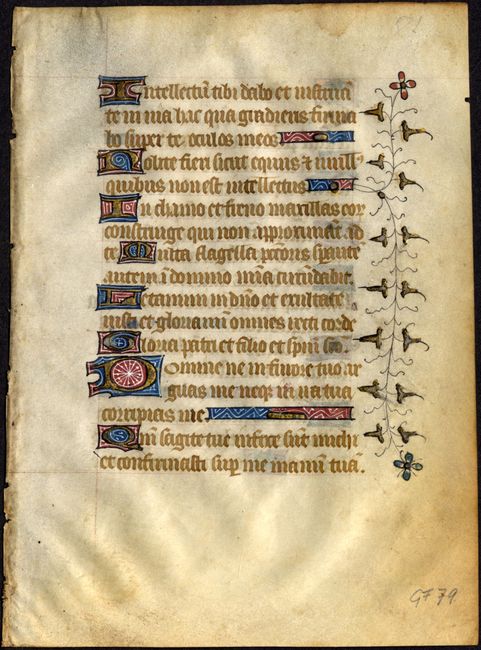 Intellectū tibi dabo et instruā
te in uia hac qua gradieris firma
bo super te oculos meos
Nolite fieri sicut equus ⁊ mul᷒
quibus non est intellectus
In chamo et freno maxillas eoꝝ
constringe qui non approximāt ad
te Multa flagella pctōris sperāte
autem ī domino mīa circūdabit.
Letamini in dnō et exultate
iusti et gloriamini omnes recti corde
Gloria patri et filio et spiritui sctō.
Domine ne in furore tuo ar
guas me neqꝫ in ira tua
corripias me
Qm̄ sagite tue infixe sūt michi
et confirmasti suꝑ me manū tuā.
GF 79